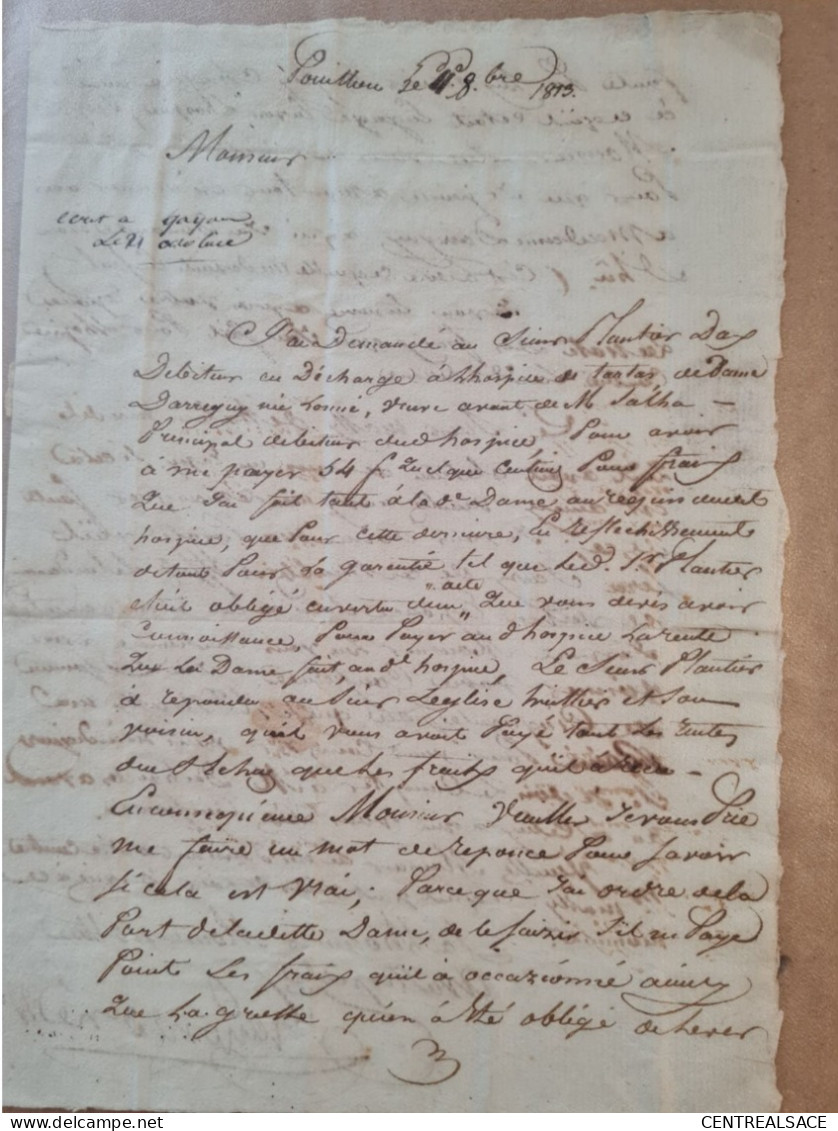 Pouillon Le 11. 8.bre 1813.
Monsieur
ecrit a gayan
Le 21 octobre
J'ai demandé au Sieur Plantier Dax
Debiteur en Décharge à L'hospice de tartas, de Dame
Darreguy née Lonné, veuve avant de M. Salha –
Principal debiteur dud. hospice, Pour avoir
à me payer 54 f. quelque centimes Pour frais
Que j'ai fait tant à la de. Dame, au requis dudit
hospice, que Pour cette derniere, En reflechissement
d'étant Pour La garentie tel que led. Sr. Plantier
s'était obligé envertu d'un acte Que vous devés avoir
Connoissance, Pour Payer aud. hospice La rente
Que La Dame fait, aud. hospice, Le Sieur Plantier
à repondu au Sieur Leglise huissier et Son
voisin, qu'il vous avait Payé tant Les rentes
que Les fraits qu'il a
En consequence Monsieur Veuillés Je vous Prie
me faire un mot de reponce Pour Savoir
Si cela est Vrai; Parceque J'ai ordre de la
Part de Laditte Dame, de le Saizir S'il ne Paye
Points Les fraix qu'il a occazionné ainsy
Que La grosse qu'on à été obligé de Lever
CENTREALSACE